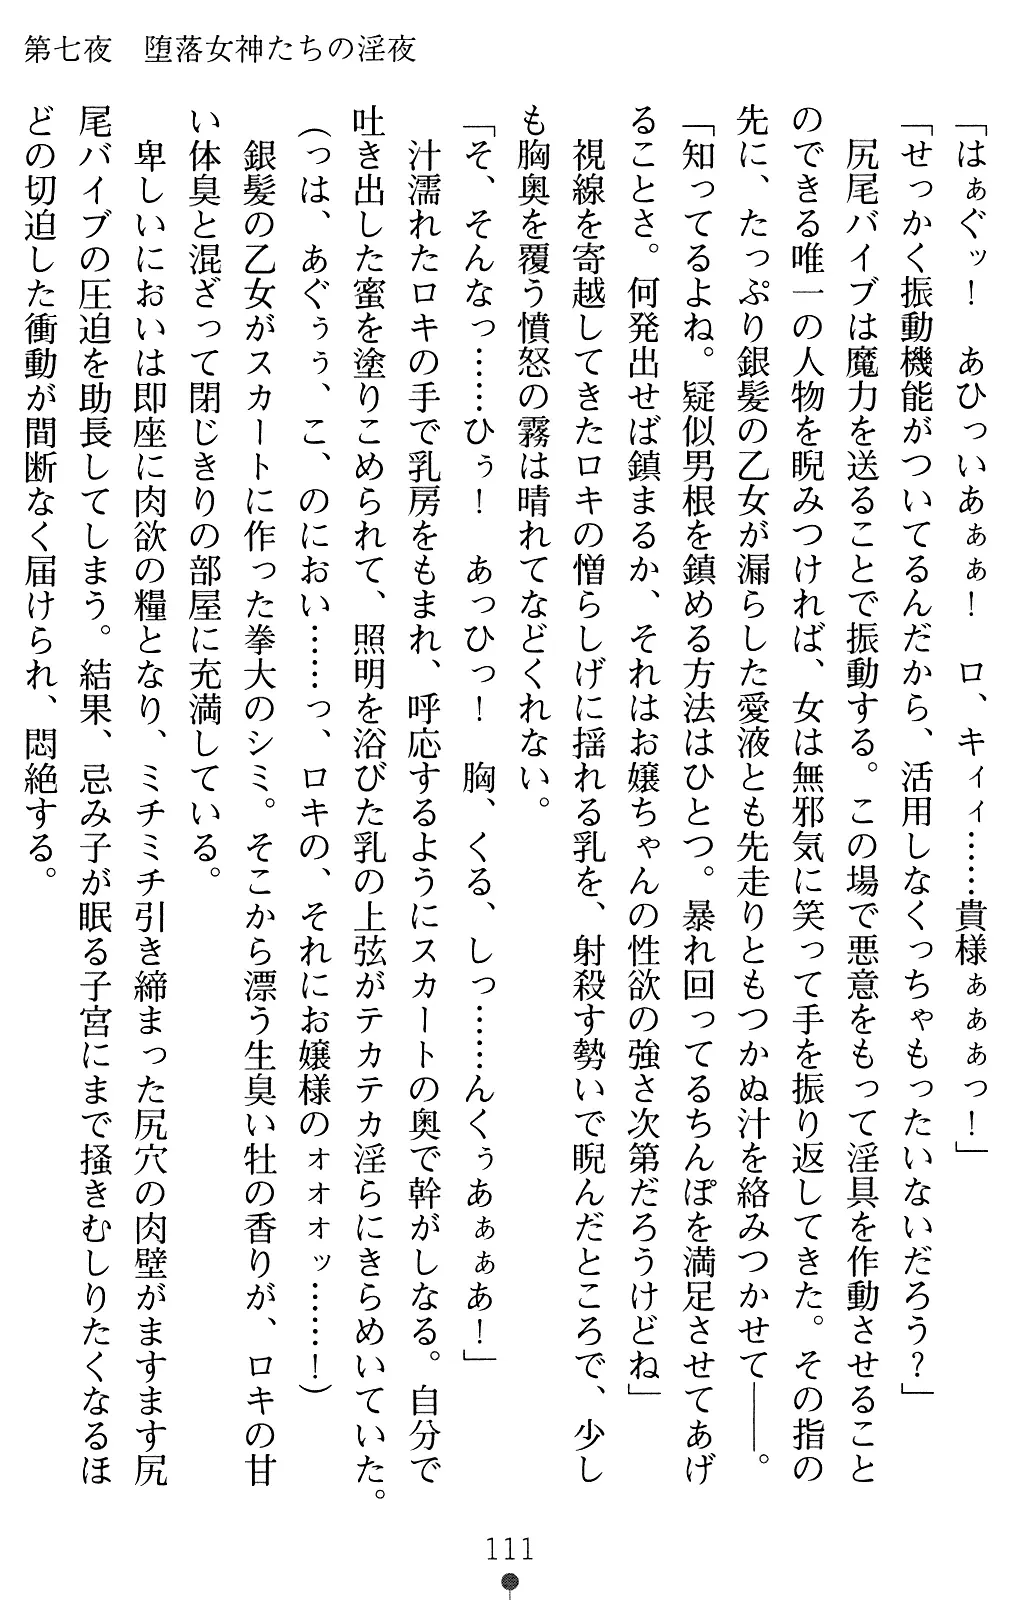 第七夜　堕落女神たちの淫夜
「はぁぐッ！　あひっいあぁぁ！　ロ、キィィ……貴様ぁぁぁっ！」
「せっかく振動機能がついてるんだから、活用しなくっちゃもったいないだろう？」
　尻尾バイブは魔力を送ることで振動する。この場で悪意をもって淫具を作動させること
のできる唯一の人物を睨みつければ、女は無邪気に笑って手を振り返してきた。その指の
先に、たっぷり銀髪の乙女が漏らした愛液とも先走りともつかぬ汁を絡みつかせて――。
「知ってるよね。疑似男根を鎮める方法はひとつ。暴れ回ってるちんぽを満足させてあげ
ることさ。何発出せば鎮まるか、それはお嬢ちゃんの性欲の強さ次第だろうけどね」
　視線を寄越してきたロキの憎らしげに揺れる乳を、射殺す勢いで睨んだところで、少し
も胸奥を覆う憤怒の霧は晴れてなどくれない。
「そ、そんなっ……ひぅ！　あっひっ！　胸、くる、しっ……んくぅあぁぁあ！」
　汁濡れたロキの手で乳房をもまれ、呼応するようにスカートの奥で幹がしなる。自分で
吐き出した蜜を塗りこめられて、照明を浴びた乳の上弦がテカテカ淫らにきらめいていた。
（っは、あぐぅぅ、こ、のにおい……っ、ロキの、それにお嬢様のォォォッ……！）
　銀髪の乙女がスカートに作った拳大のシミ。そこから漂う生臭い牡の香りが、ロキの甘
い体臭と混ざって閉じきりの部屋に充満している。
　卑しいにおいは即座に肉欲の糧となり、ミチミチ引き締まった尻穴の肉壁がますます尻
尾バイブの圧迫を助長してしまう。結果、忌み子が眠る子宮にまで掻きむしりたくなるほ
どの切迫した衝動が間断なく届けられ、悶絶する。
111